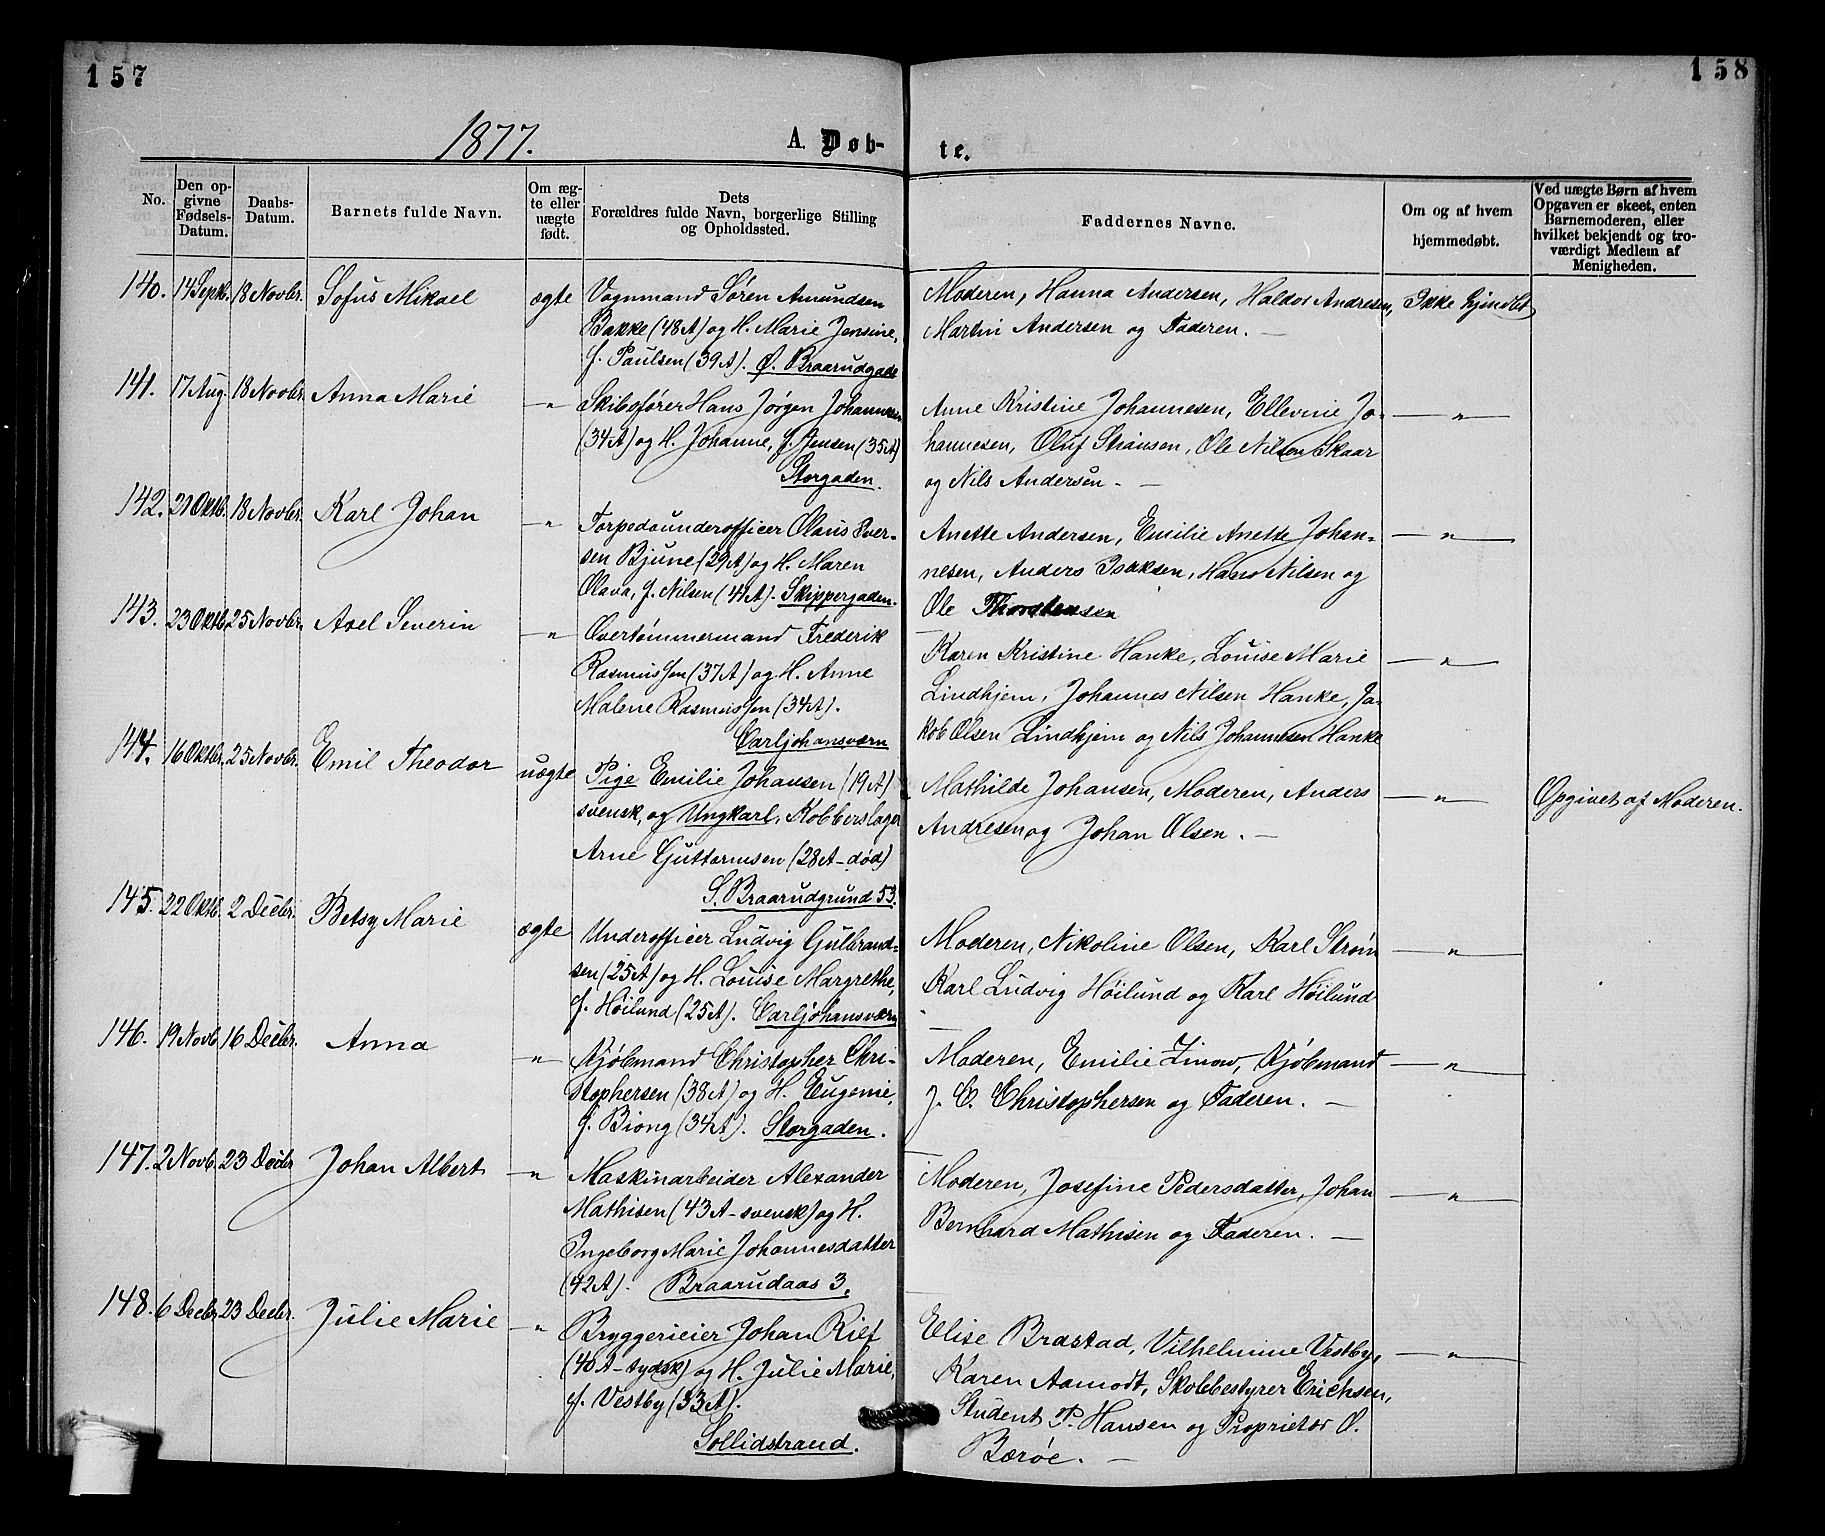 157
158
1877.
A. Døb-
te.
No.
Den op-
givne
Fødsels-
Datum.
Daabs-
Datum.
Barnets fulde Navn.
Om æg-
te eller
uægte
født.
Dets
Forældres fulde Navn, borgerlige Stilling
og Opholdssted.
Faddernes Navne.
Om og af hvem
hjemmedøbt.
Ved uægte Børn af hvem
Opgaven er skeet, enten
Barnemoderen, eller
hvilket bekjendt og tro-
værdigt Medlem af
Menigheden.
140. 14 Septb. 18 Novbr. Sofus Mikael ægte Vognmand Søren Amundsen
Bakke (48 A) og H. Marie Jensine,
f. Paulsen (39 A). Ø. Braarudgade
Moderen, Hanna Andersen, Haldor Andresen, Ikke hjmdbt
Martin Andersen og Faderen. —
141. 17 Aug. 18 Novbr. Anna Marie — " Skibsfører Hans Jørgen Johannesen
(34 A) og H. Johanne, f. Jensen (35 A)
Storgaden.
Anne Kristine Johannesen, Ellevine Jo- — " —
hannesen, Oluf Stransen, Ole Nilsen Skaar
og Nils Andersen. —
142. 21 Oktb. 18 Novbr. Karl Johan — " Torpedounderofficer Olaus Iver-
sen Bjune (29 A) og H. Maren
Olava, f. Nilsen (41 A). Skippergaden.
Anette Andersen, Emilie Anette Johan- — " —
nesen, Anders Isaksen, Hans Nilsen og
Ole Thorstensen
143. 23 Oktb. 25 Novbr. Axel Severin — " Overtømmermand Frederik
Rasmussen (37 A) og H. Anne
Malene Rasmussen (34 A).
Carljohansværn
Karen Kristine Hanke, Louise Marie — " —
Lindhjem, Johannes Nilsen Hanke, Ja-
kob Olsen Lindhjem og Nils Johannesen Hanke
144. 16 Oktbr. 25 Novbr. Emil Theodor uægte Pige Emilie Johansen (19 A)
svensk, og Ungkarl, Kobberslager
Arne Guttormsen (28 A - død)
S. Braarudgrund 53.
Mathilde Johansen, Moderen, Anders — " — Opgivet af Moderen.
Andresen og Johan Olsen. —
145. 22 Oktb. 2 Decbr. Betsy Marie ægte Underofficer Ludvig Gulbrand-
sen (25 A) og H. Louise Margrethe,
f. Høilund (25 A). Carljohansværn
Moderen, Nikoline Olsen, Karl Strøm — " —
Karl Ludvig Høilund og Karl Høilund
146. 19 Novb. 16 Decbr. Anna — " Kjøbmand Christopher Chri-
stophersen (38 A) og H. Eugenie,
f. Biong (34 A). Storgaden.
Moderen, Emilie Linow, Kjøbmand — " —
J. C. Christophersen og Faderen. —
147. 2 Novb. 23 Decbr Johan Albert — " Maskinarbeider Alexander
Mathisen (43 A - svensk) og H.
Ingeborg Marie Johannesdatter
(42 A). Braarudaas 3.
Moderen, Josefine Pedersdatter, Johan — " —
Bernhard Mathisen og Faderen. —
148. 6 Decbr 23 Decbr. Julie Marie — " Bryggerieier Johan Rief
(40 A - tydsk) og H. Julie Marie,
f. Vestby (33 A).
Sollidstrand.
Elise Brastad, Vilhelmine Vestby, — " —
Karen Aamodt, Skolebestyrer Erichsen,
Student P. Hansen og Proprietær O.
Bærøe. —